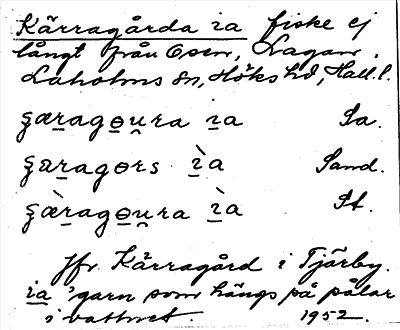 Kärragårda ia fiske ej
långt från Osen, Lagan,
Laholms sn, Höks hd, Hall. l.
ʂæragɵu̯ra ìa Sa.
ʂæragɵrs ìa Sand.
ʂæ̀ragɵu̯ra ìa St.
Jfr Kärragård i Tjärby.
ia 'garn som hängs på pålar
i vattnet. 1952.